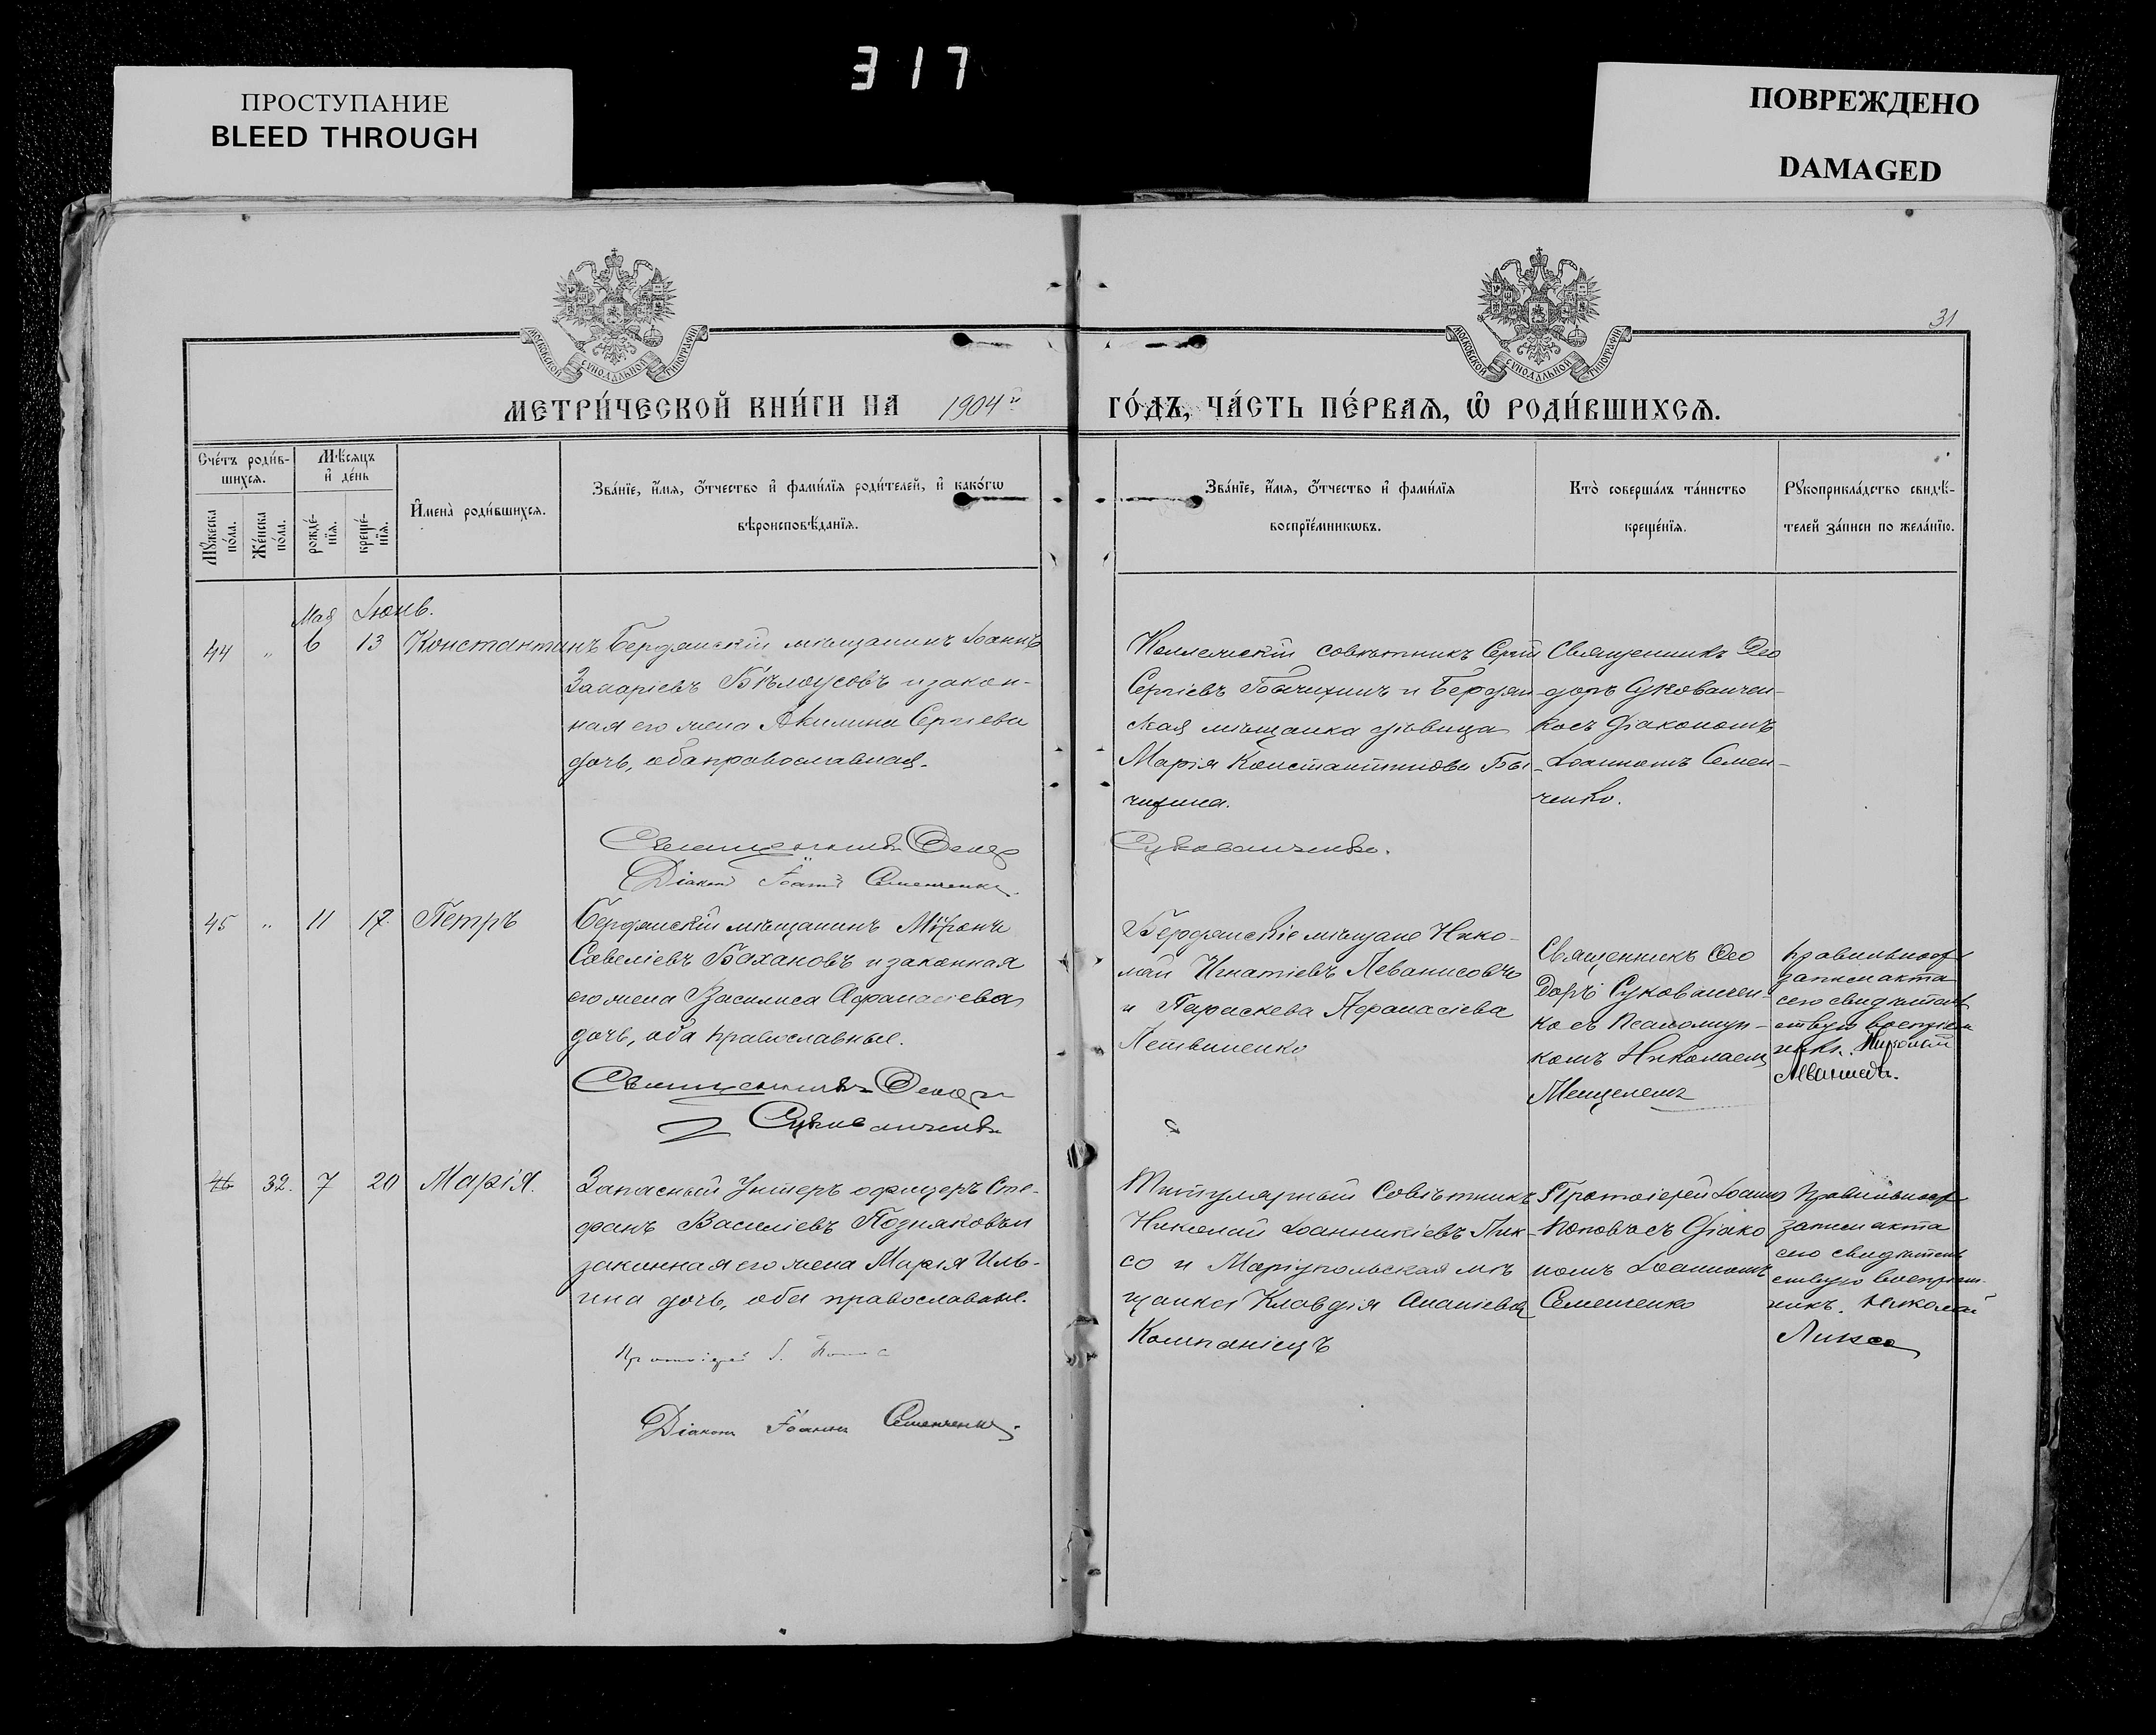 317
ПРОСТУПАНИЕ
BLEED THROUGH
ПОВРЕЖДЕНО
DAMAGED
31
МОСКОВСКОЙ СѴНОДАЛЬНОЙ ТИПОГРАФІИ
МОСКОВСКОЙ СѴНОДАЛЬНОЙ ТИПОГРАФІИ
МЕТРИ́ЧЕСКОЙ КНИ́ГИ НА 1904й ГО́ДЪ, ЧА́СТЬ ПЕ́РВАѦ, Ѡ РОДИ́ВШИХСѦ.
Сче́тъ роди́в-
шихсѧ.
Мꙋ́жеска по́ла.
Же́нска по́ла.
Мѣ́сѧцъ
и҆ де́нь
рожде́-
нїѧ.
креще́-
нїѧ.
И҆мена̀ роди́вшихсѧ.
Зва́нїе, и҆́мѧ, ѻ҆́тчество и҆ фами́лїѧ роди́телей, и҆ како́гѡ
вѣроисповѣ́данїѧ.
Зва́нїе, и҆́мѧ, ѻ҆́тчество и҆ фами́лїѧ
воспрїе́мникѡвъ.
Кто̀ соверша́лъ та́инство
креще́нїѧ.
Рꙋкоприкла́дство свидѣ́-
телей за́писи по жела́нїю.
Мая Іюнь.
44 " 6 13 Константинъ
Бердянскій мѣщанинъ Іоаннъ
Захаріевъ Бѣлоусовъ и закон-
ная его жена Акилина Сергіева
дочь, оба православная.
Священникъ Ѳеодоръ
Діаконъ Іоаннъ Семенченко.
Коллежскій совѣтникъ Сергій
Сергіевъ Бычихинъ и Бердян-
ская мѣщанка дѣвица
Марія Константинова Бы-
чихина.
Сукованченко.
Священникъ Ѳео
доръ Сукованчен-
ко съ Діакономъ
Іоанномъ Семен-
ченко.
45 " 11 17. Петръ
Бердянскій мѣщанинъ
Савеліевъ Бахановъ и законная
его жена Василиса Афанасіева
дочь, оба православные.
Священникъ Ѳеодоръ
Сукованченко
Бердянскіе мѣщане Нико-
лай Игнатіевъ Леванисовъ
и Параскева Афанасіева
Литвиненко
Священникъ Ѳео
доръ Сукованчен-
ко съ Псаломщи-
комъ Николаемъ
Правильность
записи акта
сего свидѣтель
ствую воспріем
никъ. Николай
46 32. 7 20 Марія.
Запасный Унтеръ офицеръ Сте-
фанъ Василіевъ Позняковъ и
законная его жена Марія Иль-
ина дочь, оба православные.
Протоіерей І. Поповъ
Діаконъ Іоаннъ Семенченко.
Титулярный Совѣтникъ
Николай Іоанникіевъ Лик-
со и Маріупольская мѣ
щанка Клавдія Ананіева
Компаніецъ
Протоіерей Іоаннъ
Поповъ съ Діако
номъ Іоанномъ
Семенченко
Правильность
записи акта
сего свидѣтель
ствую воспріем-
никъ. Николай
Ликсо